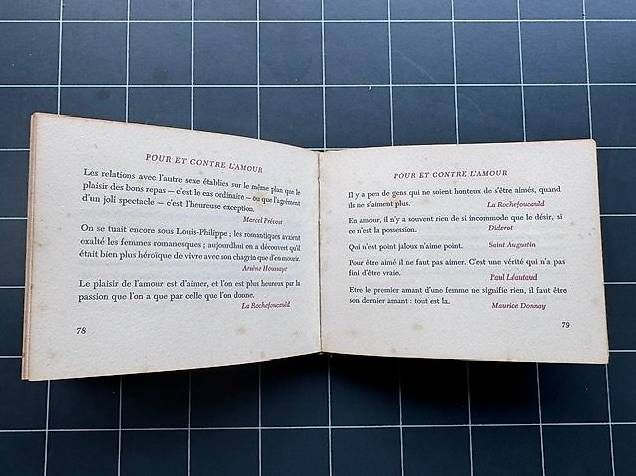 POUR ET CONTRE L'AMOUR
Les relations avec l'autre sexe établies sur le même plan que le
plaisir des bons repas — c'est le cas ordinaire — ou que l'agrément
d'un joli spectacle — c'est l'heureuse exception.
Marcel Prévost
On se tuait encore sous Louis-Philippe ; les romantiques avaient
exalté les femmes romanesques ; aujourdhui on a découvert qu'il
était bien plus héroïque de vivre avec son chagrin que d'en mourir.
Arsène Houssaye
Le plaisir de l'amour est d'aimer, et l'on est plus heureux par la
passion que l'on a que par celle que l'on donne.
La Rochefoucauld
78
POUR ET CONTRE L'AMOUR
Il y a peu de gens qui ne soient honteux de s'être aimés, quand
ils ne s'aiment plus. La Rochefoucauld
En amour, il n'y a souvent rien de si incommode que le désir, si
ce n'est la possession. Diderot
Qui n'est point jaloux n'aime point. Saint Augustin
Pour être aimé il ne faut pas aimer. C'est une vérité qui n'a pas
fini d'être vraie. Paul Léautaud
Etre le premier amant d'une femme ne signifie rien, il faut être
son dernier amant : tout est la. Maurice Donnay
79